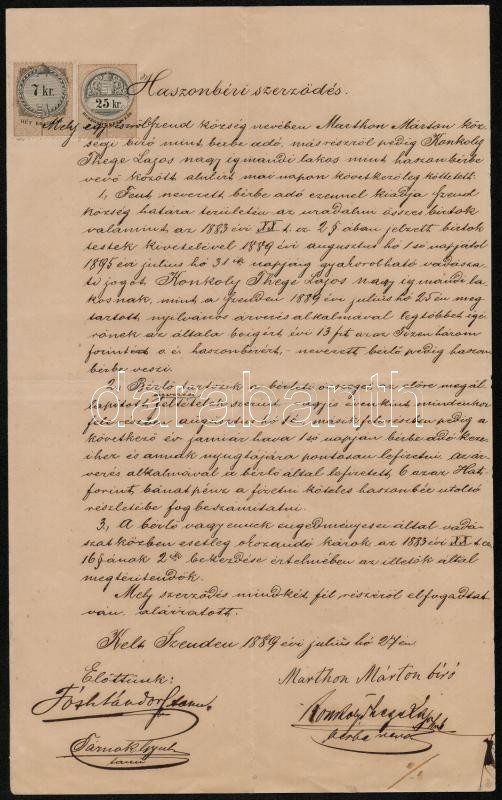 7 kr.
25 kr.
Haszonbéri szerződés.
Mely egyrészről Szend község nevében Marthon Márton köz-
ségi biró mint bérbe adó, másrészről pedig Konkoly
Thege Lajos nagy igmándi lakos mint haszonbérbe
vevő között alulirt mai napon következőleg köttetett:
1, Fent nevezett bérbe adó ezennel kiadja Szend
község határa területén az uradalmi összes birtok
valamint az 1883 évi XX t. cz 2 § ában jelzett birtok
testek kivételével 1889 évi augusztus hó 1 ső napjától
1895 évi julius hó 31 ik napjáig gyakorolható vadásza-
ti jogot Konkoly Thege Lajos nagy igmándi la-
kosnak, mint a Szenden 1889 évi július hó 25 én meg
tartott nyilvános árverés alkalmával legtöbbet igé-
rőnek az általa beigért évi 13 frt azaz Tizenhárom
forintért o. é. haszonbérért, nevezett bérlő pedig haszon
bérbe veszi.
2, Bérlő tartozik a bérleti összeget az előre megál-
lapitott feltételek szerint vagyis évenkint mindenkor
felerészben augusztus hó 1 én másik felerészben pedig a
következő év január hava 1 ső napján bérbe adó kese-
ihez és annak nyugtájára pontosan lefizetni. Az ár-
verés alkalmával a bérlő által lefizetett 6 azaz Hat
forint bánatpénz a fizetni köteles haszonbér utolsó
részletébe fog beszámittatni.
3, A bérlő vagy ennek engedményesei által vadá-
szat közben esetleg okozandó károk az 1883 évi XX. t. cz.
16 § ának 2 ik bekezdése értelmében az illetők által
megtéritendők.
Mely szerződés mindkét fél részéről elfogadtat-
ván, aláiratott.
Kelt Szenden 1889 évi julius hó 27 én
Előttünk:
Marthon Márton biró
Konkoly Thege Lajos
bérbe vevő
tanu
tanu
databanth